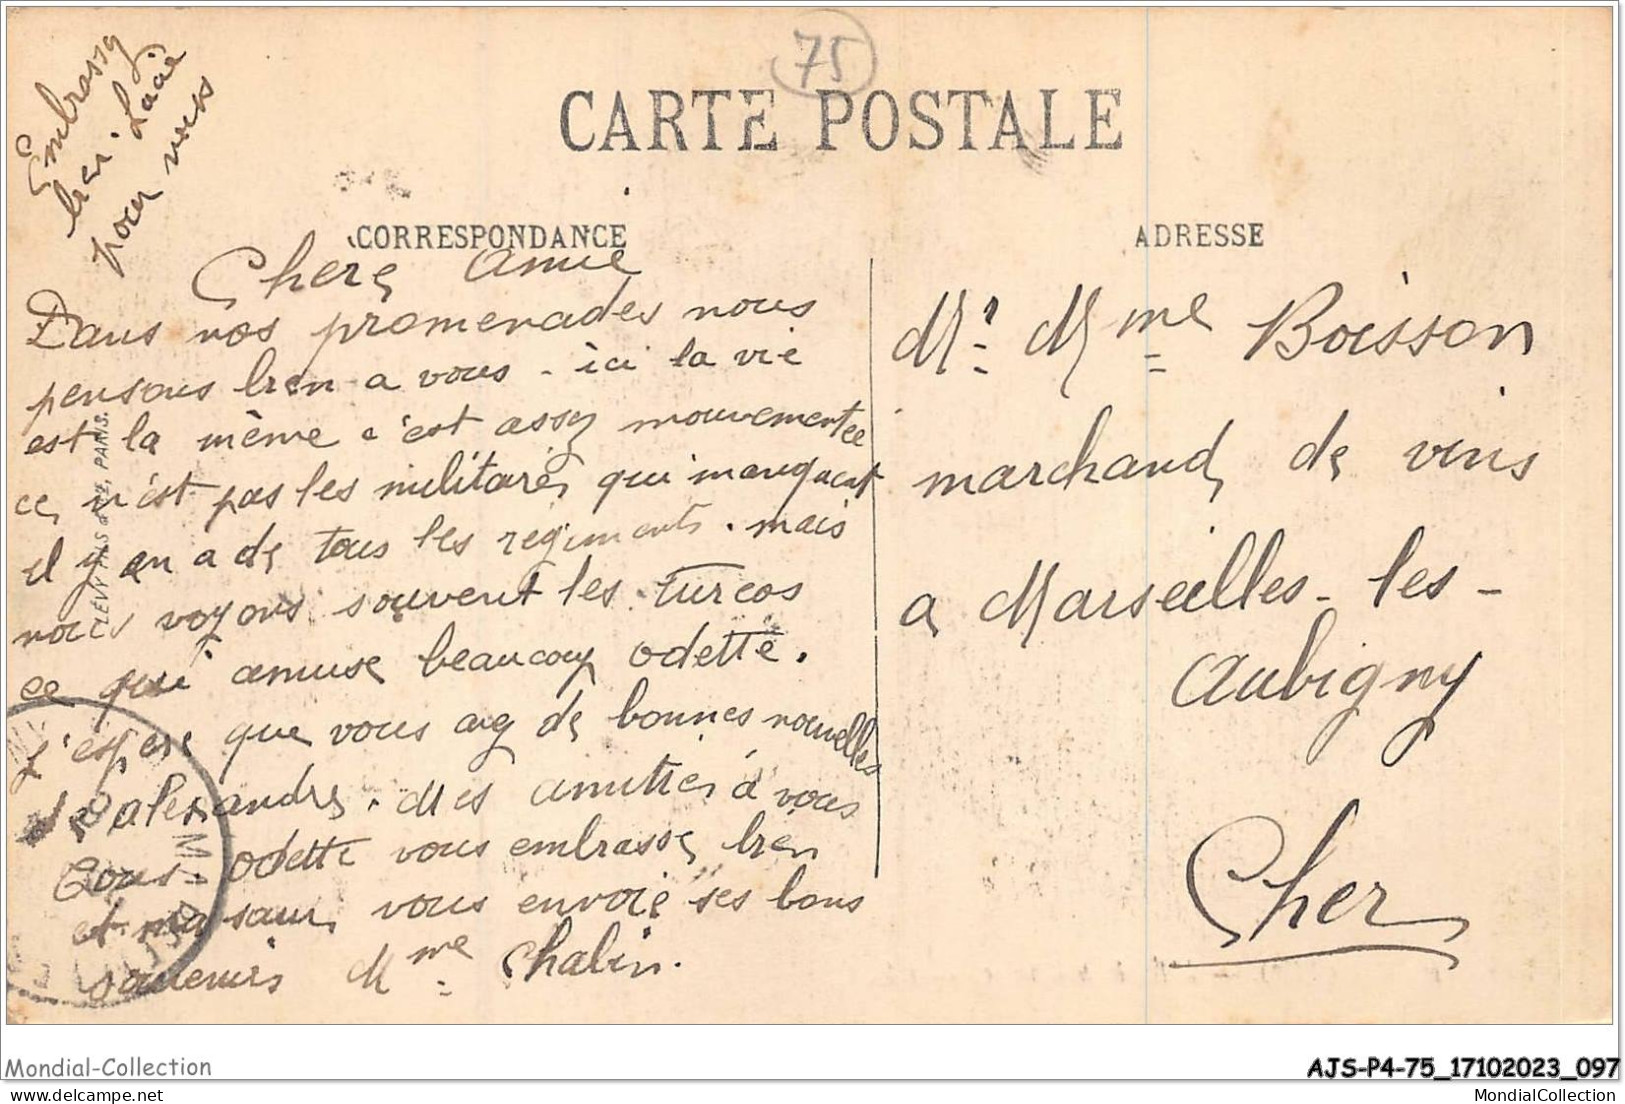 75
CARTE POSTALE
Embrassez
bien Lucie
pour nous
CORRESPONDANCE
Chere amie
Dans nos promenades nous
pensons bien a vous - ici la vie
est la même c'est assez mouvementée
ce n'est pas les militaires qui manquent
il y en a de tous les régiments. mais
nous voyons souvent les turcos
ce qui amuse beaucoup odette.
j'espere que vous avez de bonnes nouvelles
d'alexandre. Mes amitiés à vous
Tous. odette vous embrasse bien
et ma sœur vous envoie ses bons
souvenirs Mme Chalin.
LÉVY FILS & Cie, PARIS.
ADRESSE
Mr. Mme Boisson
marchand de vins
a Marseilles-les-
Aubigny
Cher
Mondial-Collection
AJS-P4-75_17102023_097
delcampe.net
MondialCollection